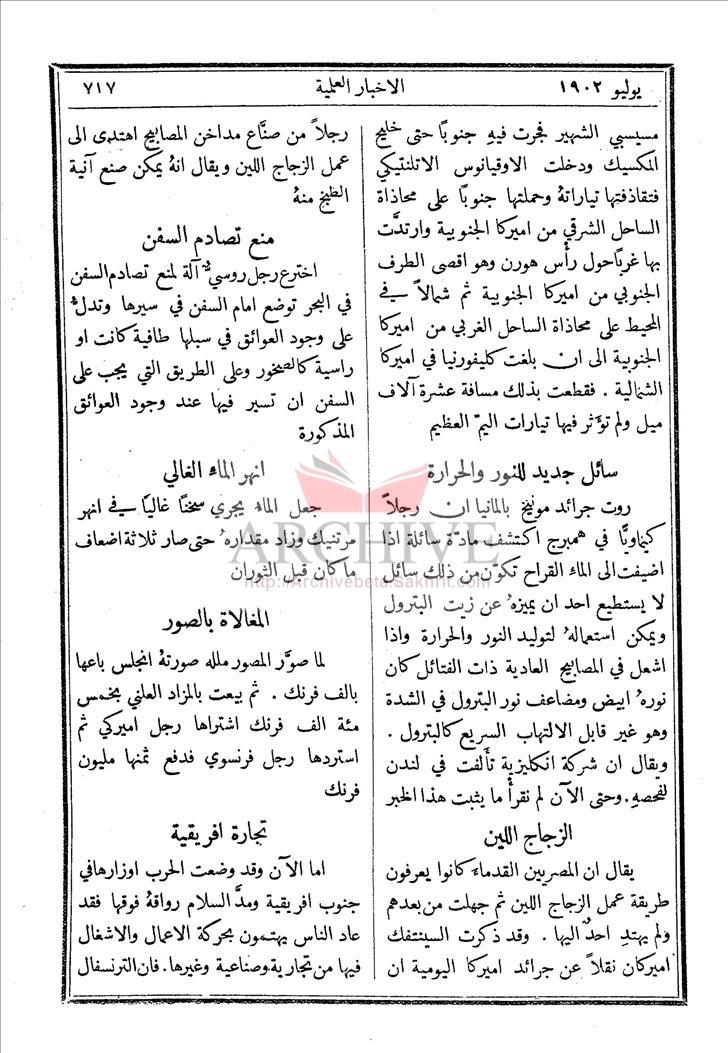 يوليو ١٩٠٢
الاخبار العلمية
٧١٧
مسيسبي الشهير فجرت فيهِ جنوبًا حتى خليج
المكسيك ودخلت الاوقيانوس الاتلنتيكي
فتقاذفتها تياراتهُ وحملتها جنوبًا على محاذاة
الساحل الشرقي من اميركا الجنوبية وارتدَّت
بها غربًا حول رأس هورن وهو اقصى الطرف
الجنوبي من اميركا الجنوبية ثم شمالاً في
المحيط على محاذاة الساحل الغربي من اميركا
الجنوبية الى ان بلغت كليفورنيا في اميركا
الشمالية . فقطعت بذلك مسافة عشرة آلاف
ميل ولم تؤثر فيها تيارات اليمّ العظيم
سائل جديد للنور والحرارة
روت جرائد مونيخ بالمانيا ان رجلاً
كيماويًّا في همبرج اكتشف مادّة سائلة اذا
اضيفت الى الماء القراح تكوّن من ذلك سائل
لا يستطيع احد ان يميزهُ عن زيت البترول
ويمكن استعمالهُ لتوليد النور والحرارة واذا
اشعل في المصابيح العادية ذات الفتائل كان
نورهُ ابيض ومضاعف نور البترول في الشدة
وهو غير قابل الالتهاب السريع كالبترول .
ويقال ان شركة انكليزية تألفت في لندن
لفحصهِ . وحتى الآن لم نقرأ ما يثبت هذا الخبر
الزجاج اللين
يقال ان المصربين القدماء كانوا يعرفون
طريقة عمل الزجاج اللين ثم جهلت من بعدهم
ولم يهتدِ احدٌ اليها . وقد ذكرت السينتفك
اميركان نقلاً عن جرائد اميركا اليومية ان
رجلاً من صنَّاع مداخن المصابيح اهتدى الى
عمل الزجاج اللين ويقال انهُ يمكن صنع آنية
الطبخ منهُ
منع تصادم السفن
اخترع رجل روسيٌّ آلة لمنع تصادم السفن
في البحر توضع امام السفن في سيرها وتدلُّ
على وجود العوائق في سبلها طافية كانت او
راسية كالصخور وعلى الطريق التي يجب على
السفن ان تسير فيها عند وجود العوائق
المذكورة
انهر الماء الغالي
جعل الماء يجري سخنًا غاليًا في انهر
مرتنيك وزاد مقدارهُ حتى صار ثلاثة اضعاف
ما كان قبل الثوران
المغالاة بالصور
لما صوَّر المصور ملله صورتهُ انجلس باعها
بالف فرنك . ثم بيعت بالمزاد العلني بخمس
مئة الف فرنك اشتراها رجل اميركي ثم
استردها رجل فرنسوي فدفع ثمنها مليون
فرنك
تجارة افريقية
اما الآن وقد وضعت الحرب اوزارها في
جنوب افريقية ومدَّ السلام رواقهُ فوقها فقد
عاد الناس يهتمون بحركة الاعمال والاشغال
فيها من تجارية وصناعية وغيرها . فان الترنسفال
ARCHIVE
http://Archivebeta.Sakhrit.com